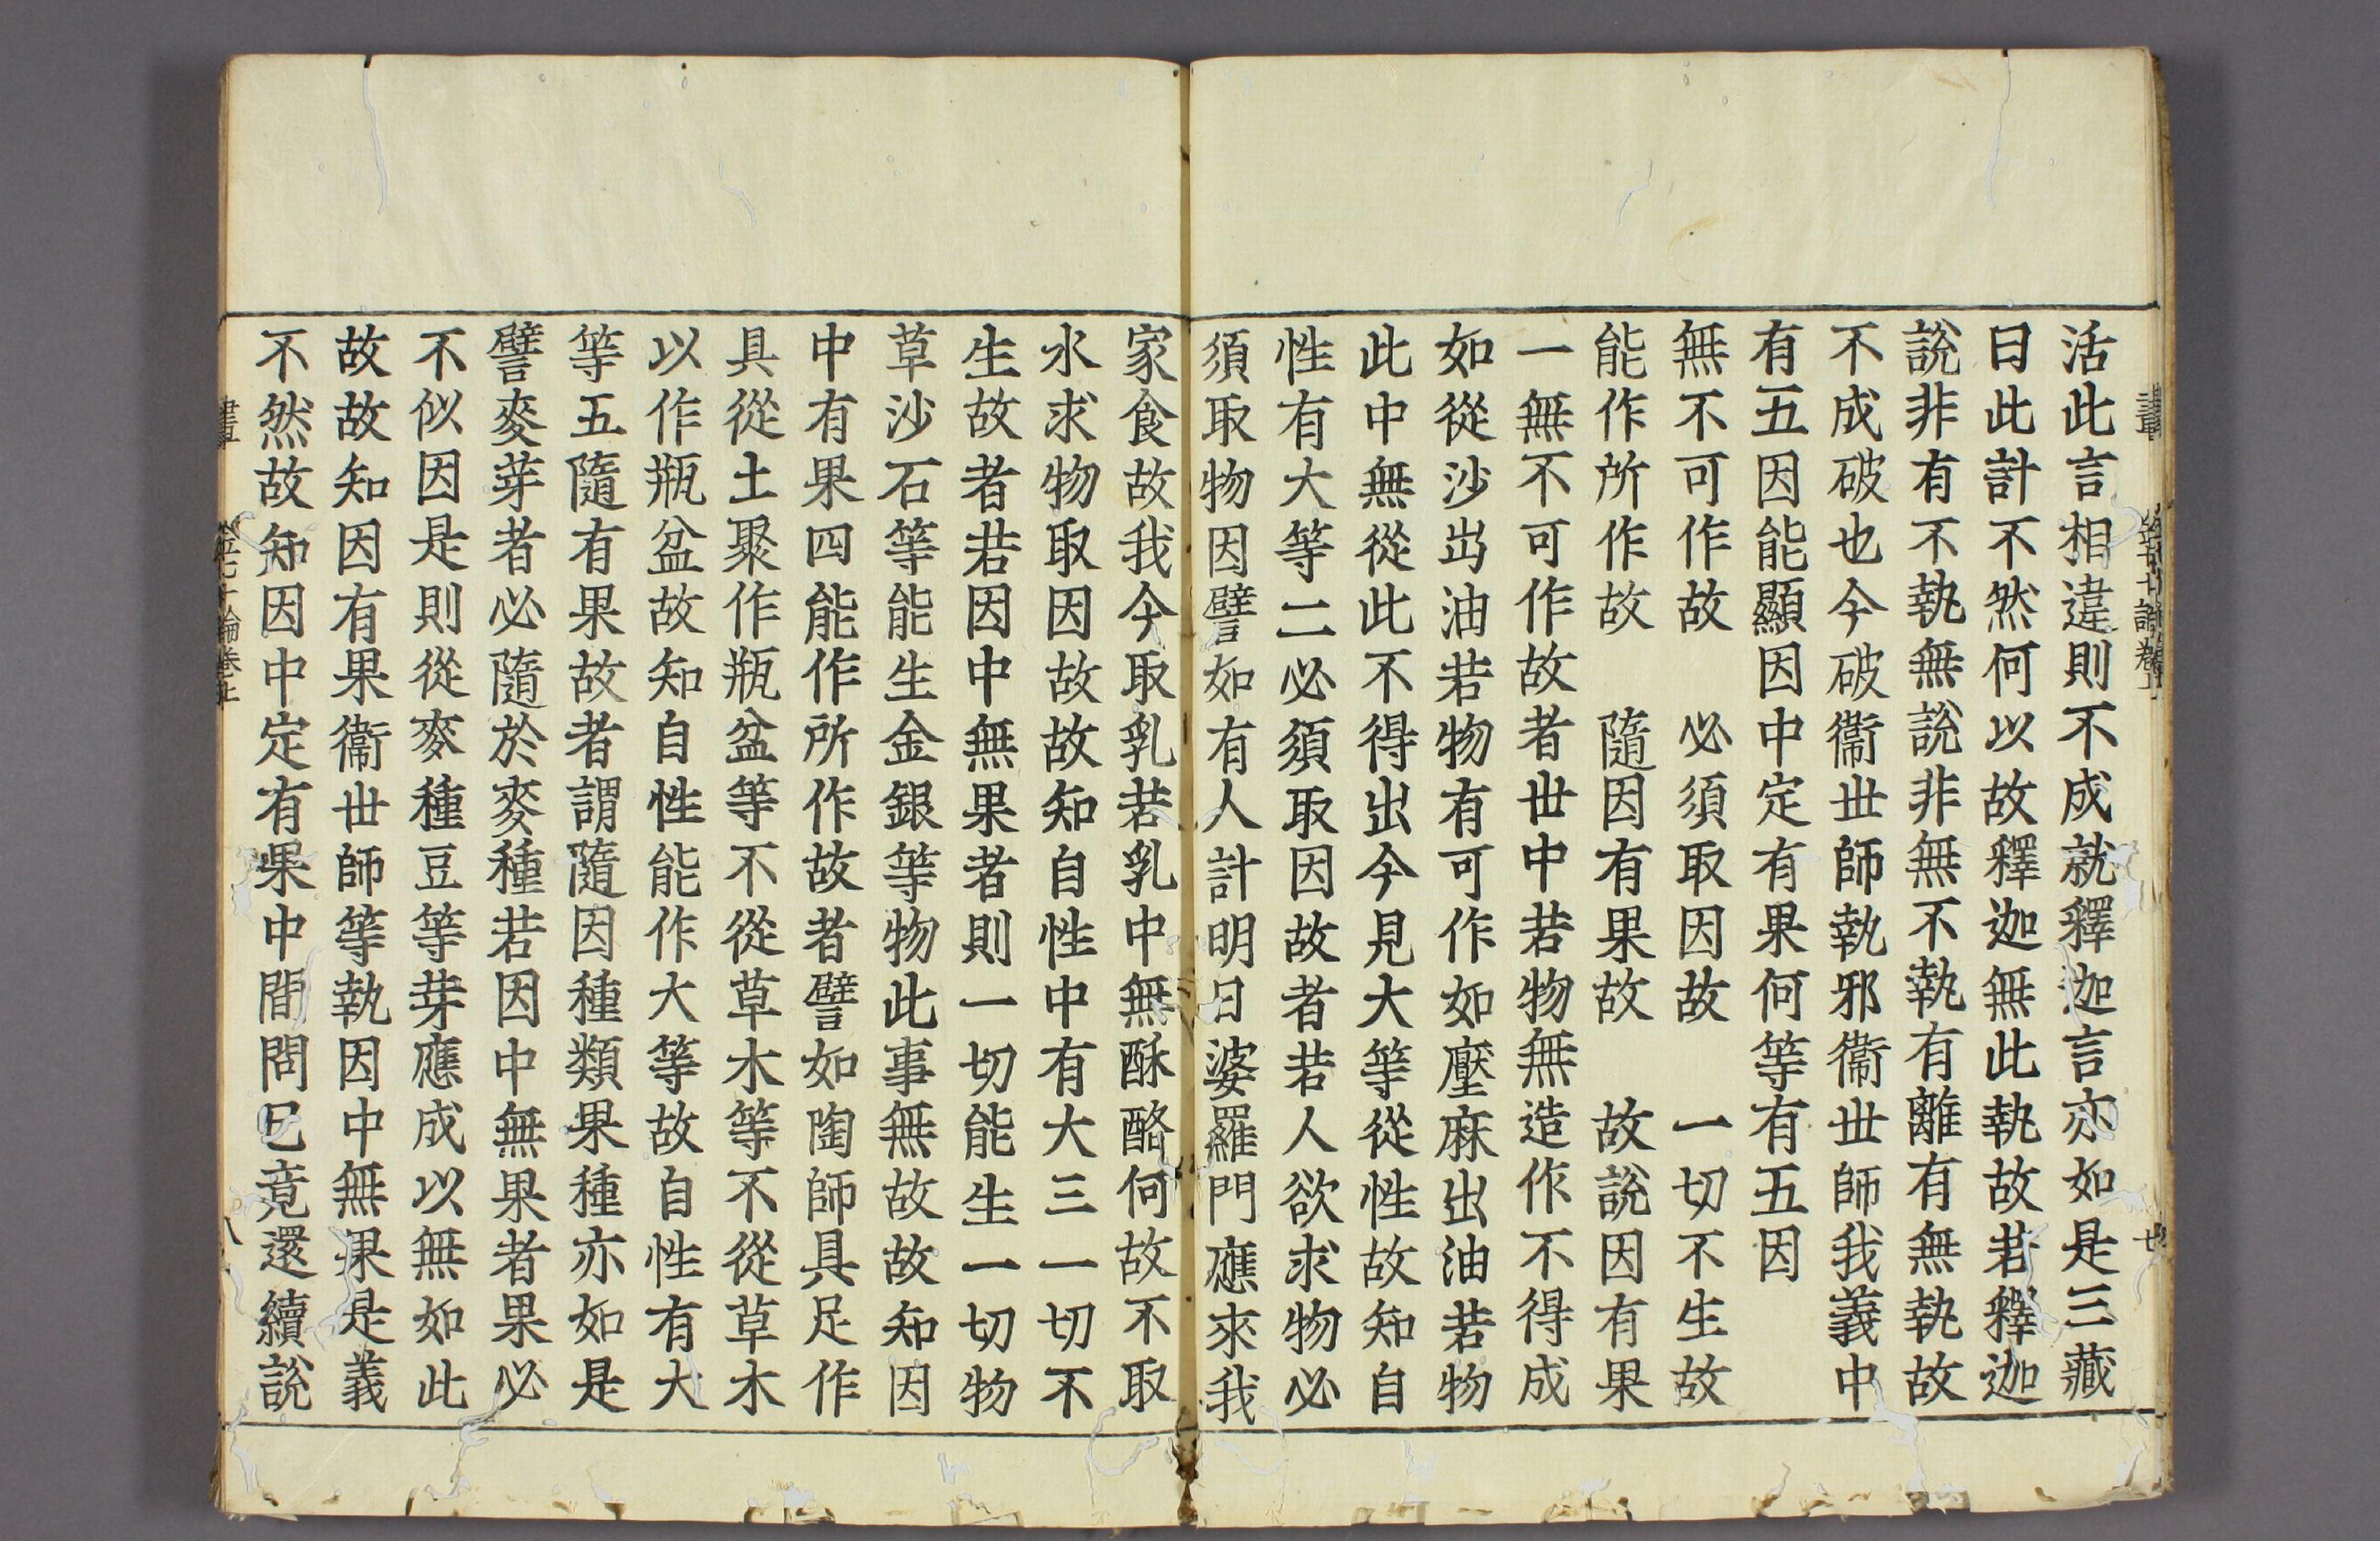 活此言相違則不成就釋迦言亦如是三藏
曰此計不然何以故釋迦無此執故若釋迦
說非有不執無說非無不執有離有無執故
不成破也今破衞世師執邪衞世師我義中
有五因能顯因中定有果何等有五因
無不可作故　必須取因故　一切不生故
能作所作故　隨因有果故　故說因有果
一無不可作故者世中若物無造作不得成
如從沙出油若物有可作如壓麻出油若物
此中無從此不得出今見大等從性故知自
性有大等二必須取因故者若人欲求物必
須取物因譬如有人計明日婆羅門應來我
家食故我今取乳若乳中無酥酪何故不取
水求物取因故故知自性中有大三一切不
生故者若因中無果者則一切能生一切物
草沙石等能生金銀等物此事無故故知因
中有果四能作所作故者譬如陶師具足作
具從土聚作瓶盆等不從草木等不從草木
以作瓶盆故知自性能作大等故自性有大
等五隨有果故者謂隨因種類果種亦如是
譬麥芽者必隨於麥種若因中無果者果必
不似因是則從麥種豆等芽應成以無如此
故故知因有果衞世師等執因中無果是義
不然故知因中定有果中間問已竟還續說
八